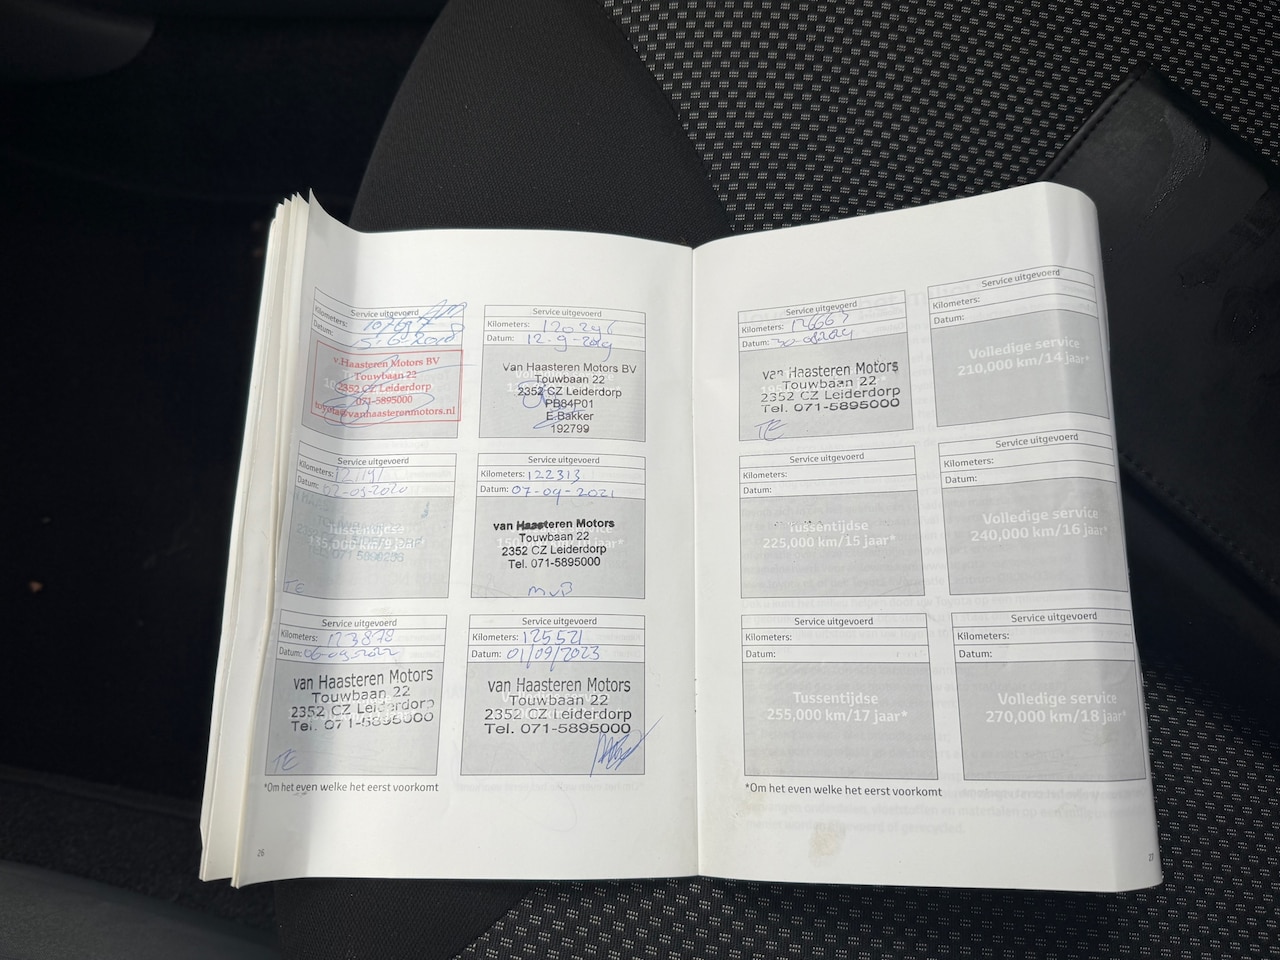 Service uitgevoerd
Kilometers:
Datum: 15-6-2018
v.Haasteren Motors BV
Touwbaan 22
2352 CZ Leiderdorp
071-5895000
toyota@vanhaasterenmotors.nl
Service uitgevoerd
Kilometers: 120296
Datum: 12-9-2019
van Haasteren Motors BV
Touwbaan 22
2352 CZ Leiderdorp
PB84P01
E.Bakker
192799
Service uitgevoerd
Kilometers:
Datum:
Tussentijdse
135,000 km/9 jaar*
TE
Service uitgevoerd
Kilometers: 122313
Datum: 07-09-2021
van Haasteren Motors
Touwbaan 22
2352 CZ Leiderdorp
Tel. 071-5895000
MvB
Service uitgevoerd
Kilometers: 123878
Datum: 06-09-2022
van Haasteren Motors
Touwbaan 22
2352 CZ Leiderdorp
Tel. 071-5895000
TE
Service uitgevoerd
Kilometers: 125521
Datum: 01/09/2023
van Haasteren Motors
Touwbaan 22
2352 CZ Leiderdorp
Tel. 071-5895000
*Om het even welke het eerst voorkomt
26
Service uitgevoerd
Kilometers: 126663
Datum: 30-082024
van Haasteren Motors
Touwbaan 22
2352 CZ Leiderdorp
Tel. 071-5895000
TE
Service uitgevoerd
Kilometers:
Datum:
Volledige service
210,000 km/14 jaar*
Service uitgevoerd
Kilometers:
Datum:
Tussentijdse
225,000 km/15 jaar*
Service uitgevoerd
Kilometers:
Datum:
Volledige service
240,000 km/16 jaar*
Service uitgevoerd
Kilometers:
Datum:
Tussentijdse
255,000 km/17 jaar*
Service uitgevoerd
Kilometers:
Datum:
Volledige service
270,000 km/18 jaar*
*Om het even welke het eerst voorkomt
27